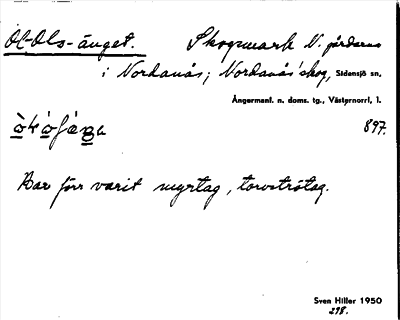 Ol-Ols-änget. Skogsmark N. gårdarna
i Nordanås; Nordanås skog, Sidensjö sn,
Ångermanl. n. doms. tg., Västernorrl. l.
897.
Har förr varit myrtag, torvströtag.
Sven Hiller 1950
298.